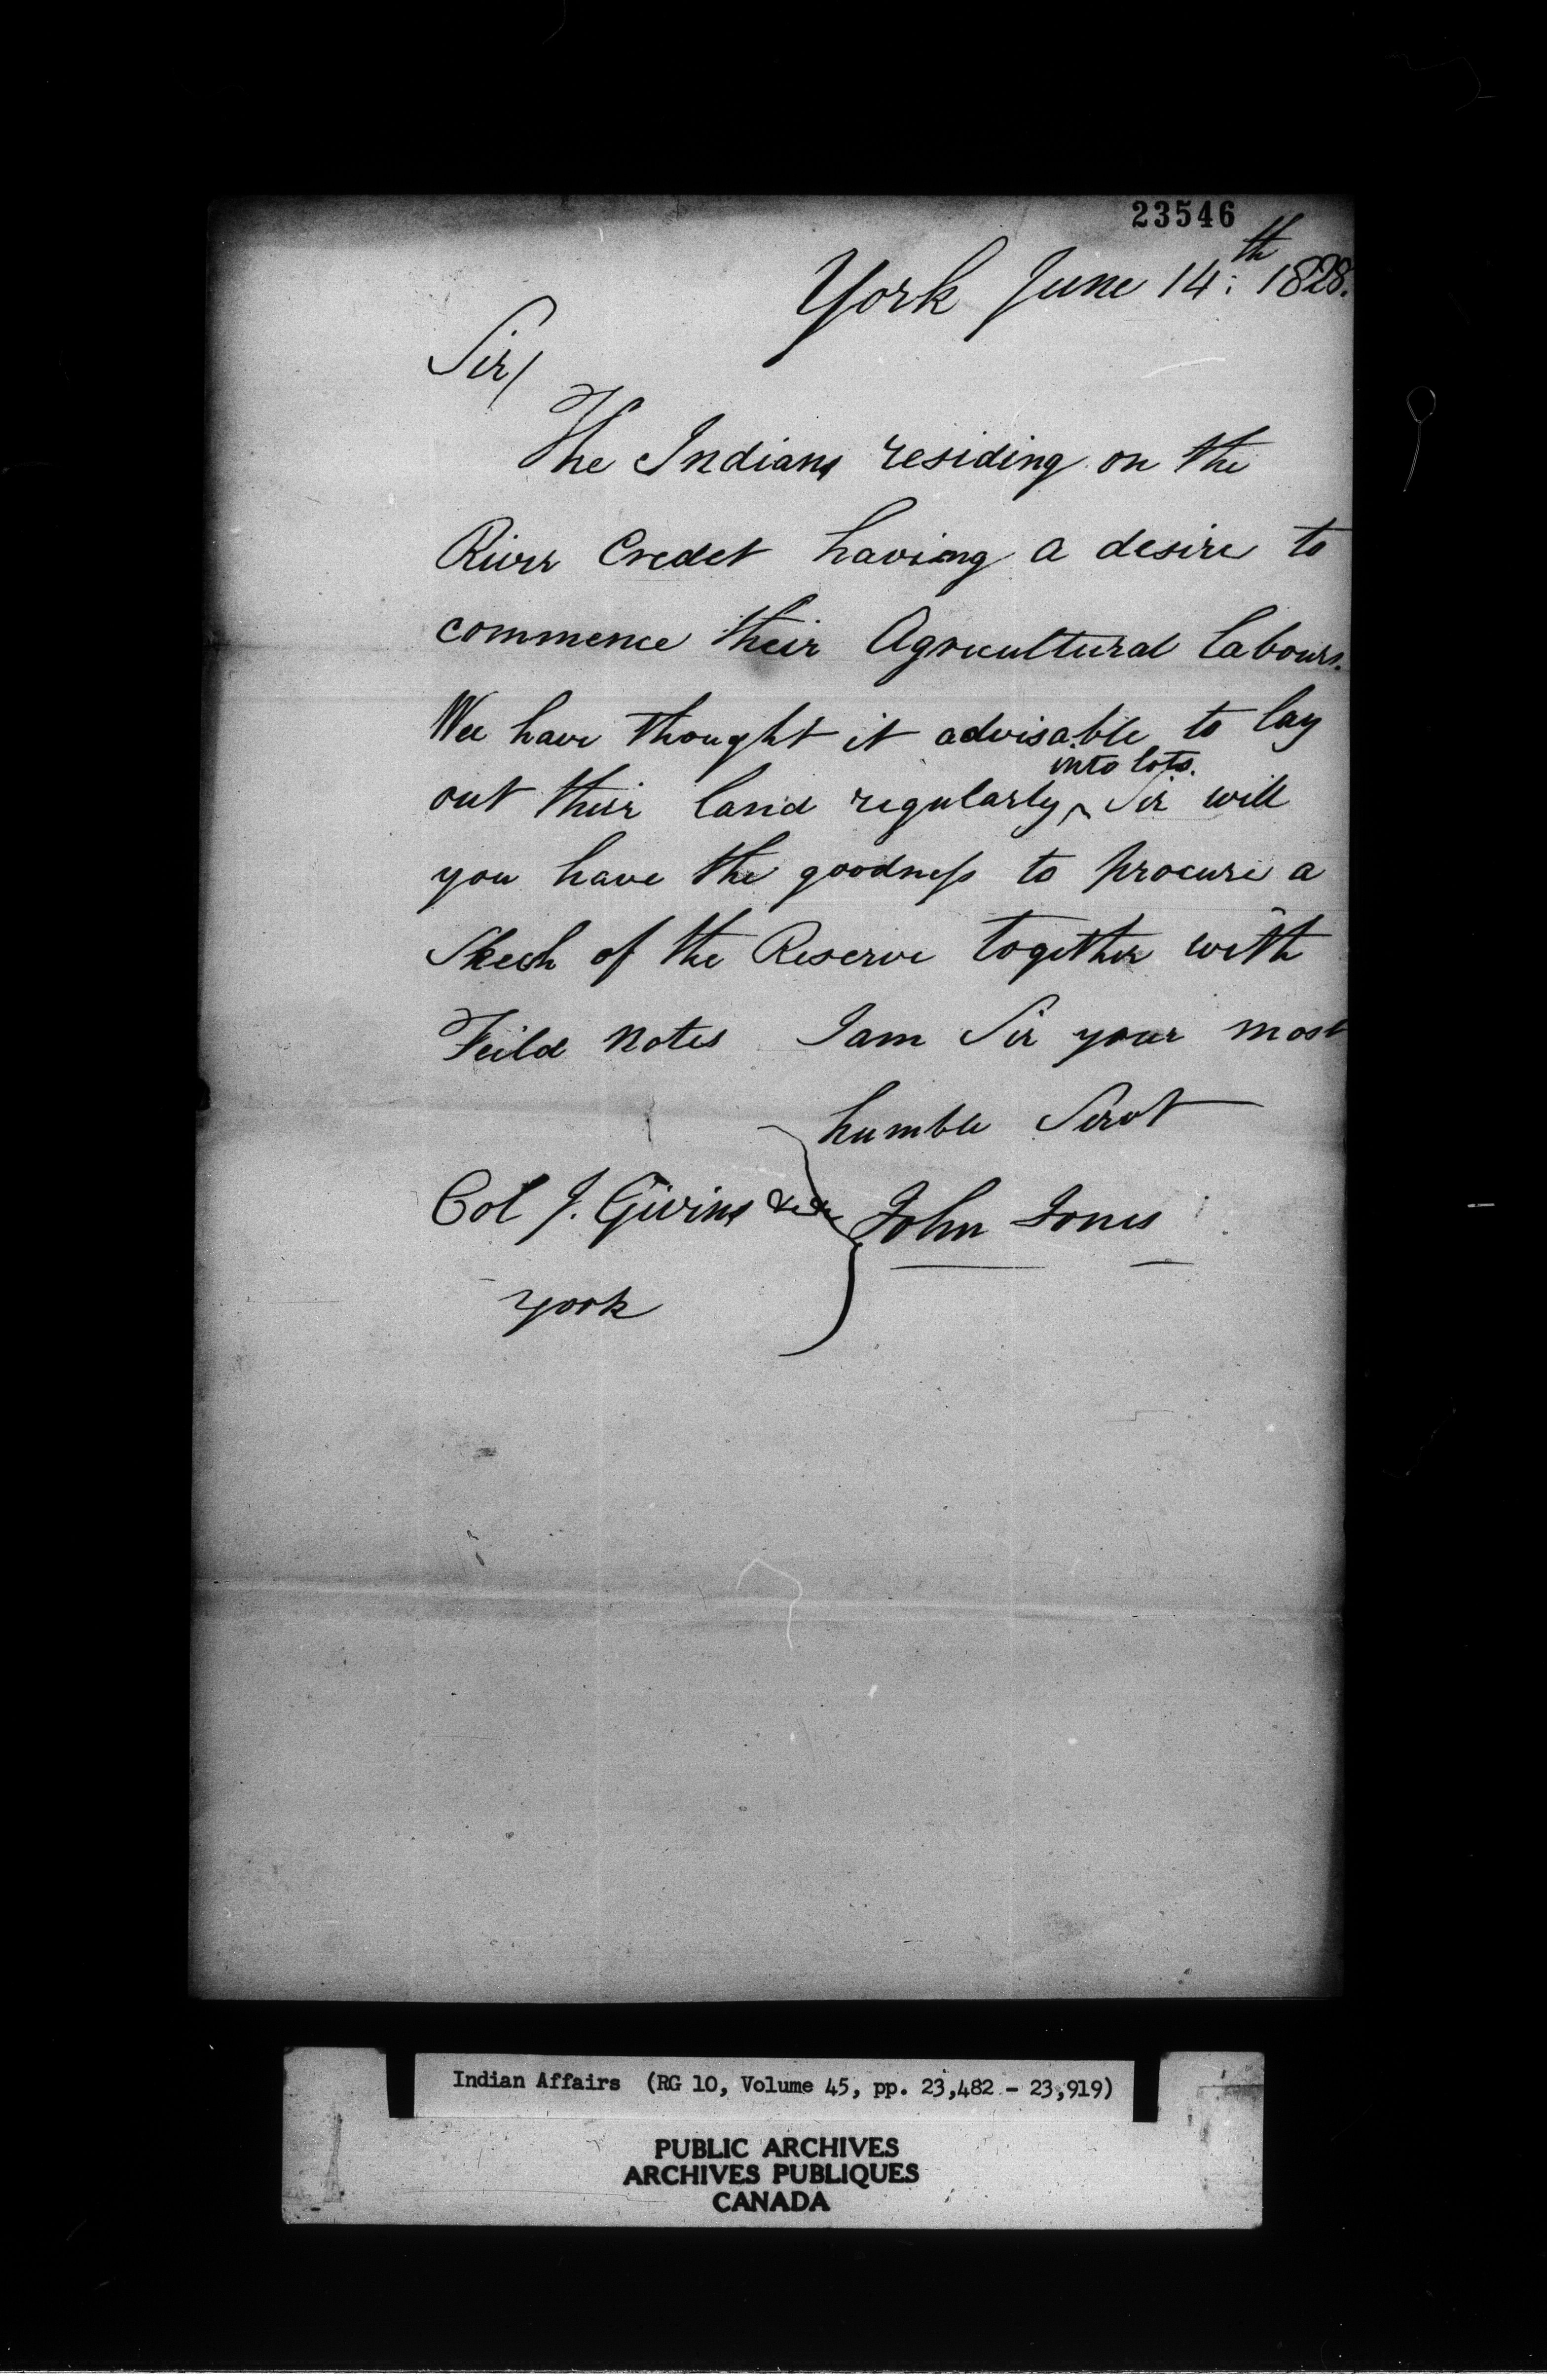 23546
York June 14:th 1828.
Sir/
The Indians residing on the
River Credet having a desire to
commence their Agricultural labours.
Wee have thought it advisable to lay
out their land regularly ^ into lots. Sir will
you have the goodness to procure a
Skech of the Reserve together with
Feild Notes I am Sir your most
humble Servt
Col J. Givins &c &c John Jones
York
Indian Affairs (RG 10, Volume 45, pp. 23,482 - 23,919)
PUBLIC ARCHIVES
ARCHIVES PUBLIQUES
CANADA